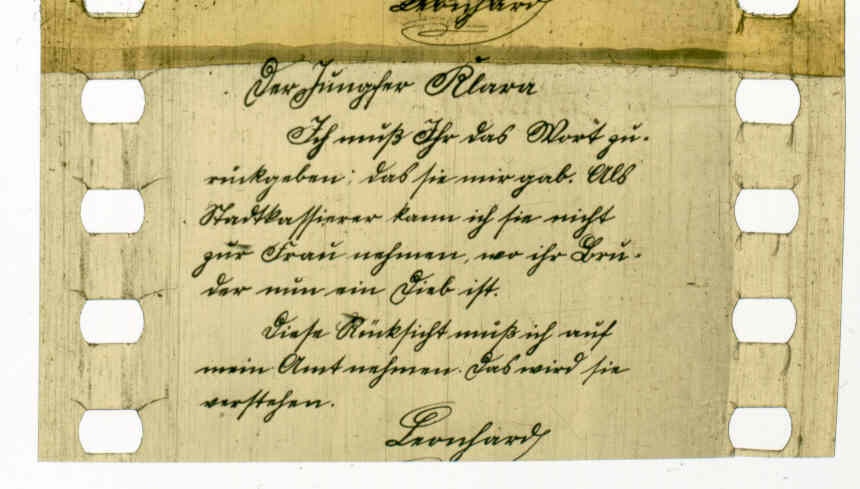 Leonhard
Der Jungfer Klara
Ich muß Ihr das Wort zu-
rückgeben; das sie mir gab. Als
Stadtkassierer kann ich sie nicht
zur Frau nehmen, wo ihr Bru-
der nun ein Dieb ist.
Diese Rücksicht muß ich auf
mein Amt nehmen. Das wird sie
verstehen.
Leonhard